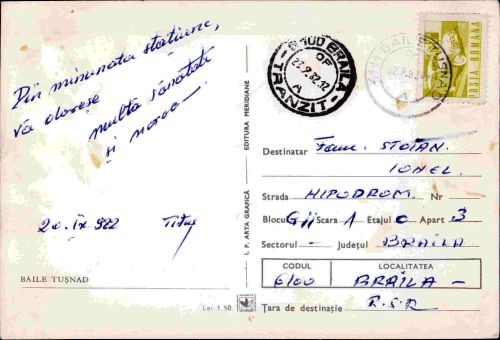 Din minunata stațiune,
vă doresc
multă sănătate
și noroc —
20.IX.922 Tituș
BAILE TUȘNAD
I. P. ARTA GRAFICĂ EDITURA MERIDIANE
Lei 1,50
6100 BRAILA
OP
22.9.82.12
A
TRANZIT
BAILE TUSNA
A
POSTA ROMANA
Destinatar Fam. STOIAN
IONEL.
Strada HIPODROM. Nr
Blocu G II Scara 1 Etajul 0 Apart 3
Sectorul – Județul BRAILA
CODUL LOCALITATEA
6100 BRAILA –
Țara de destinație R.S.R